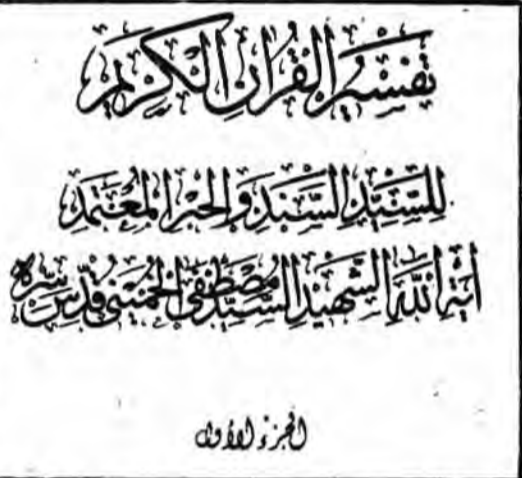 تفسير القرآن الكريم
للسيد السند والحبر المعتمد
آية الله الشهيد السيد مصطفى الخميني قدس سره
الجزء الأول